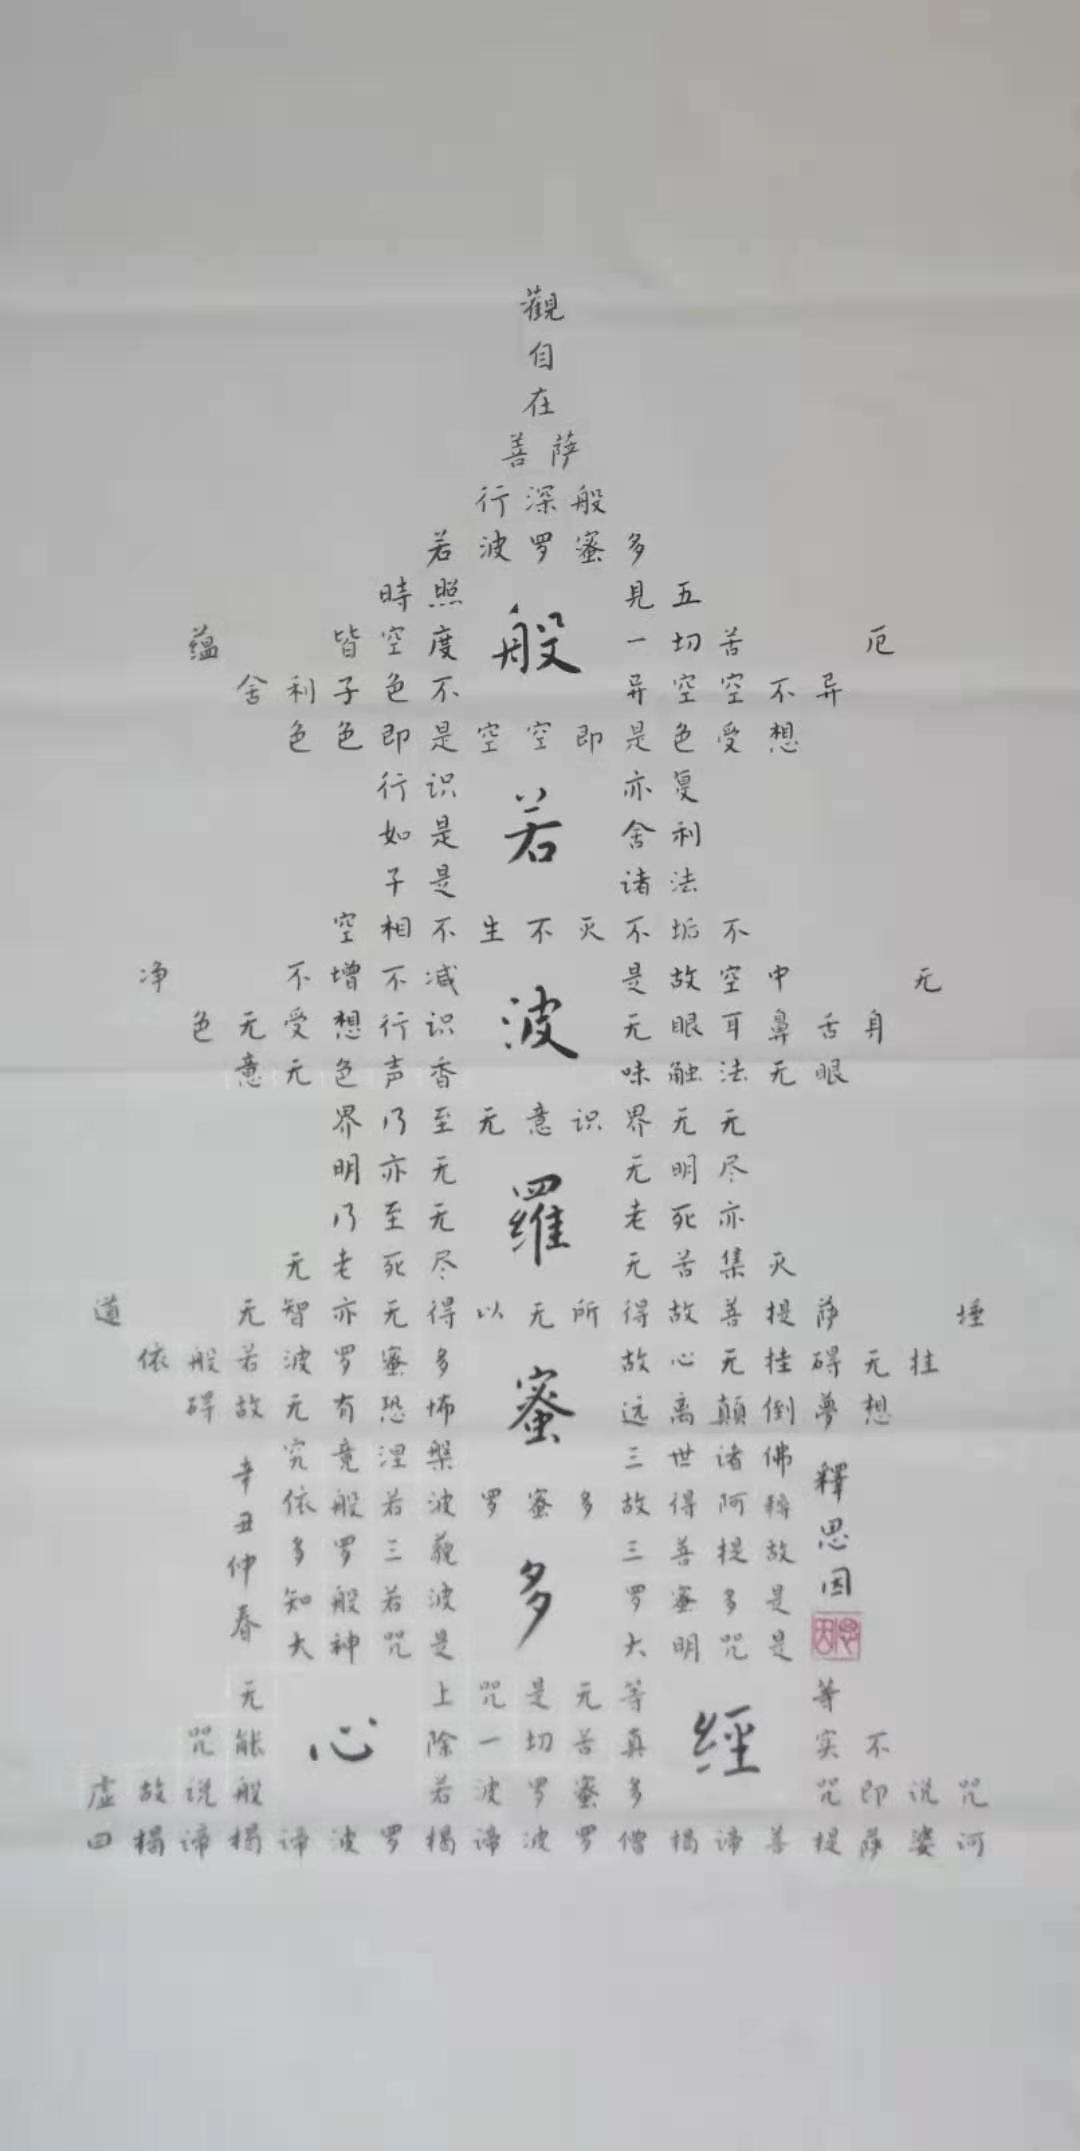 觀
自
在
菩萨
行深般
若波罗蜜多
時照 見五
蕴 皆空度 一切苦 厄
舍利子色不 异空空不异
色色即是空空即是色受想
行识 亦复
如是 舍利
子是 诸法
空相不生不灭不垢不
净 不增不减 是故空中 无
色无受想行识 无眼耳鼻舌身
意无色声香 味触法无眼
界乃至无意识界无无
明亦无 无明尽
乃至无 老死亦
无老死尽 无苦集灭
道 无智亦无得以无所得故菩提萨 埵
依般若波罗蜜多 故心无挂碍无挂
碍故无有恐怖 远离颠倒夢想
究竟涅槃 三世诸佛
依般若波罗蜜多故得阿耨
多罗三藐 三菩提故
知般若波 罗蜜多是
大神咒是 大明咒是
无 上咒是无等 等
咒能 除一切苦真 实不
虚故说般 若波罗蜜多 咒即说咒
曰揭谛揭谛波罗揭谛波罗僧揭谛菩提萨婆诃
般
若
波
羅
蜜
多
心 經
辛丑仲春
釋思因